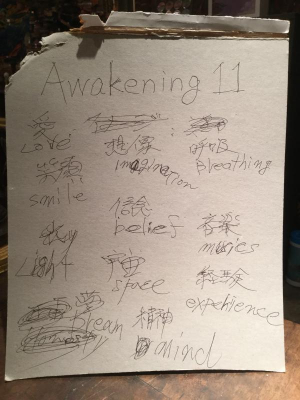 Awakening 11
愛
Love
想像
imagination
呼吸
Breathing
笑顔
smile
信念
belief
音楽
musics
Light
宇宙
space
経験
experience
夢
Dream
精神
mind